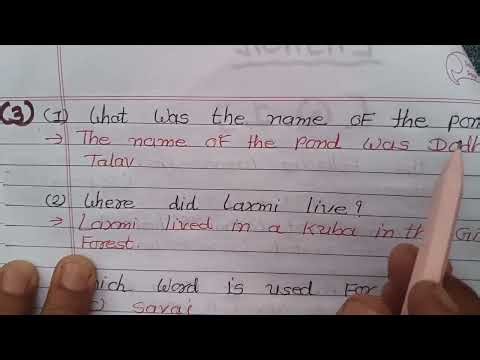 (3) (1) What was the name of the pon
→ The name of the pond was Dadh
Talav.
(2) Where did Laxmi live?
→ Laxmi lived in a Kuba in the Gi
Forest.
which word is used for
savai